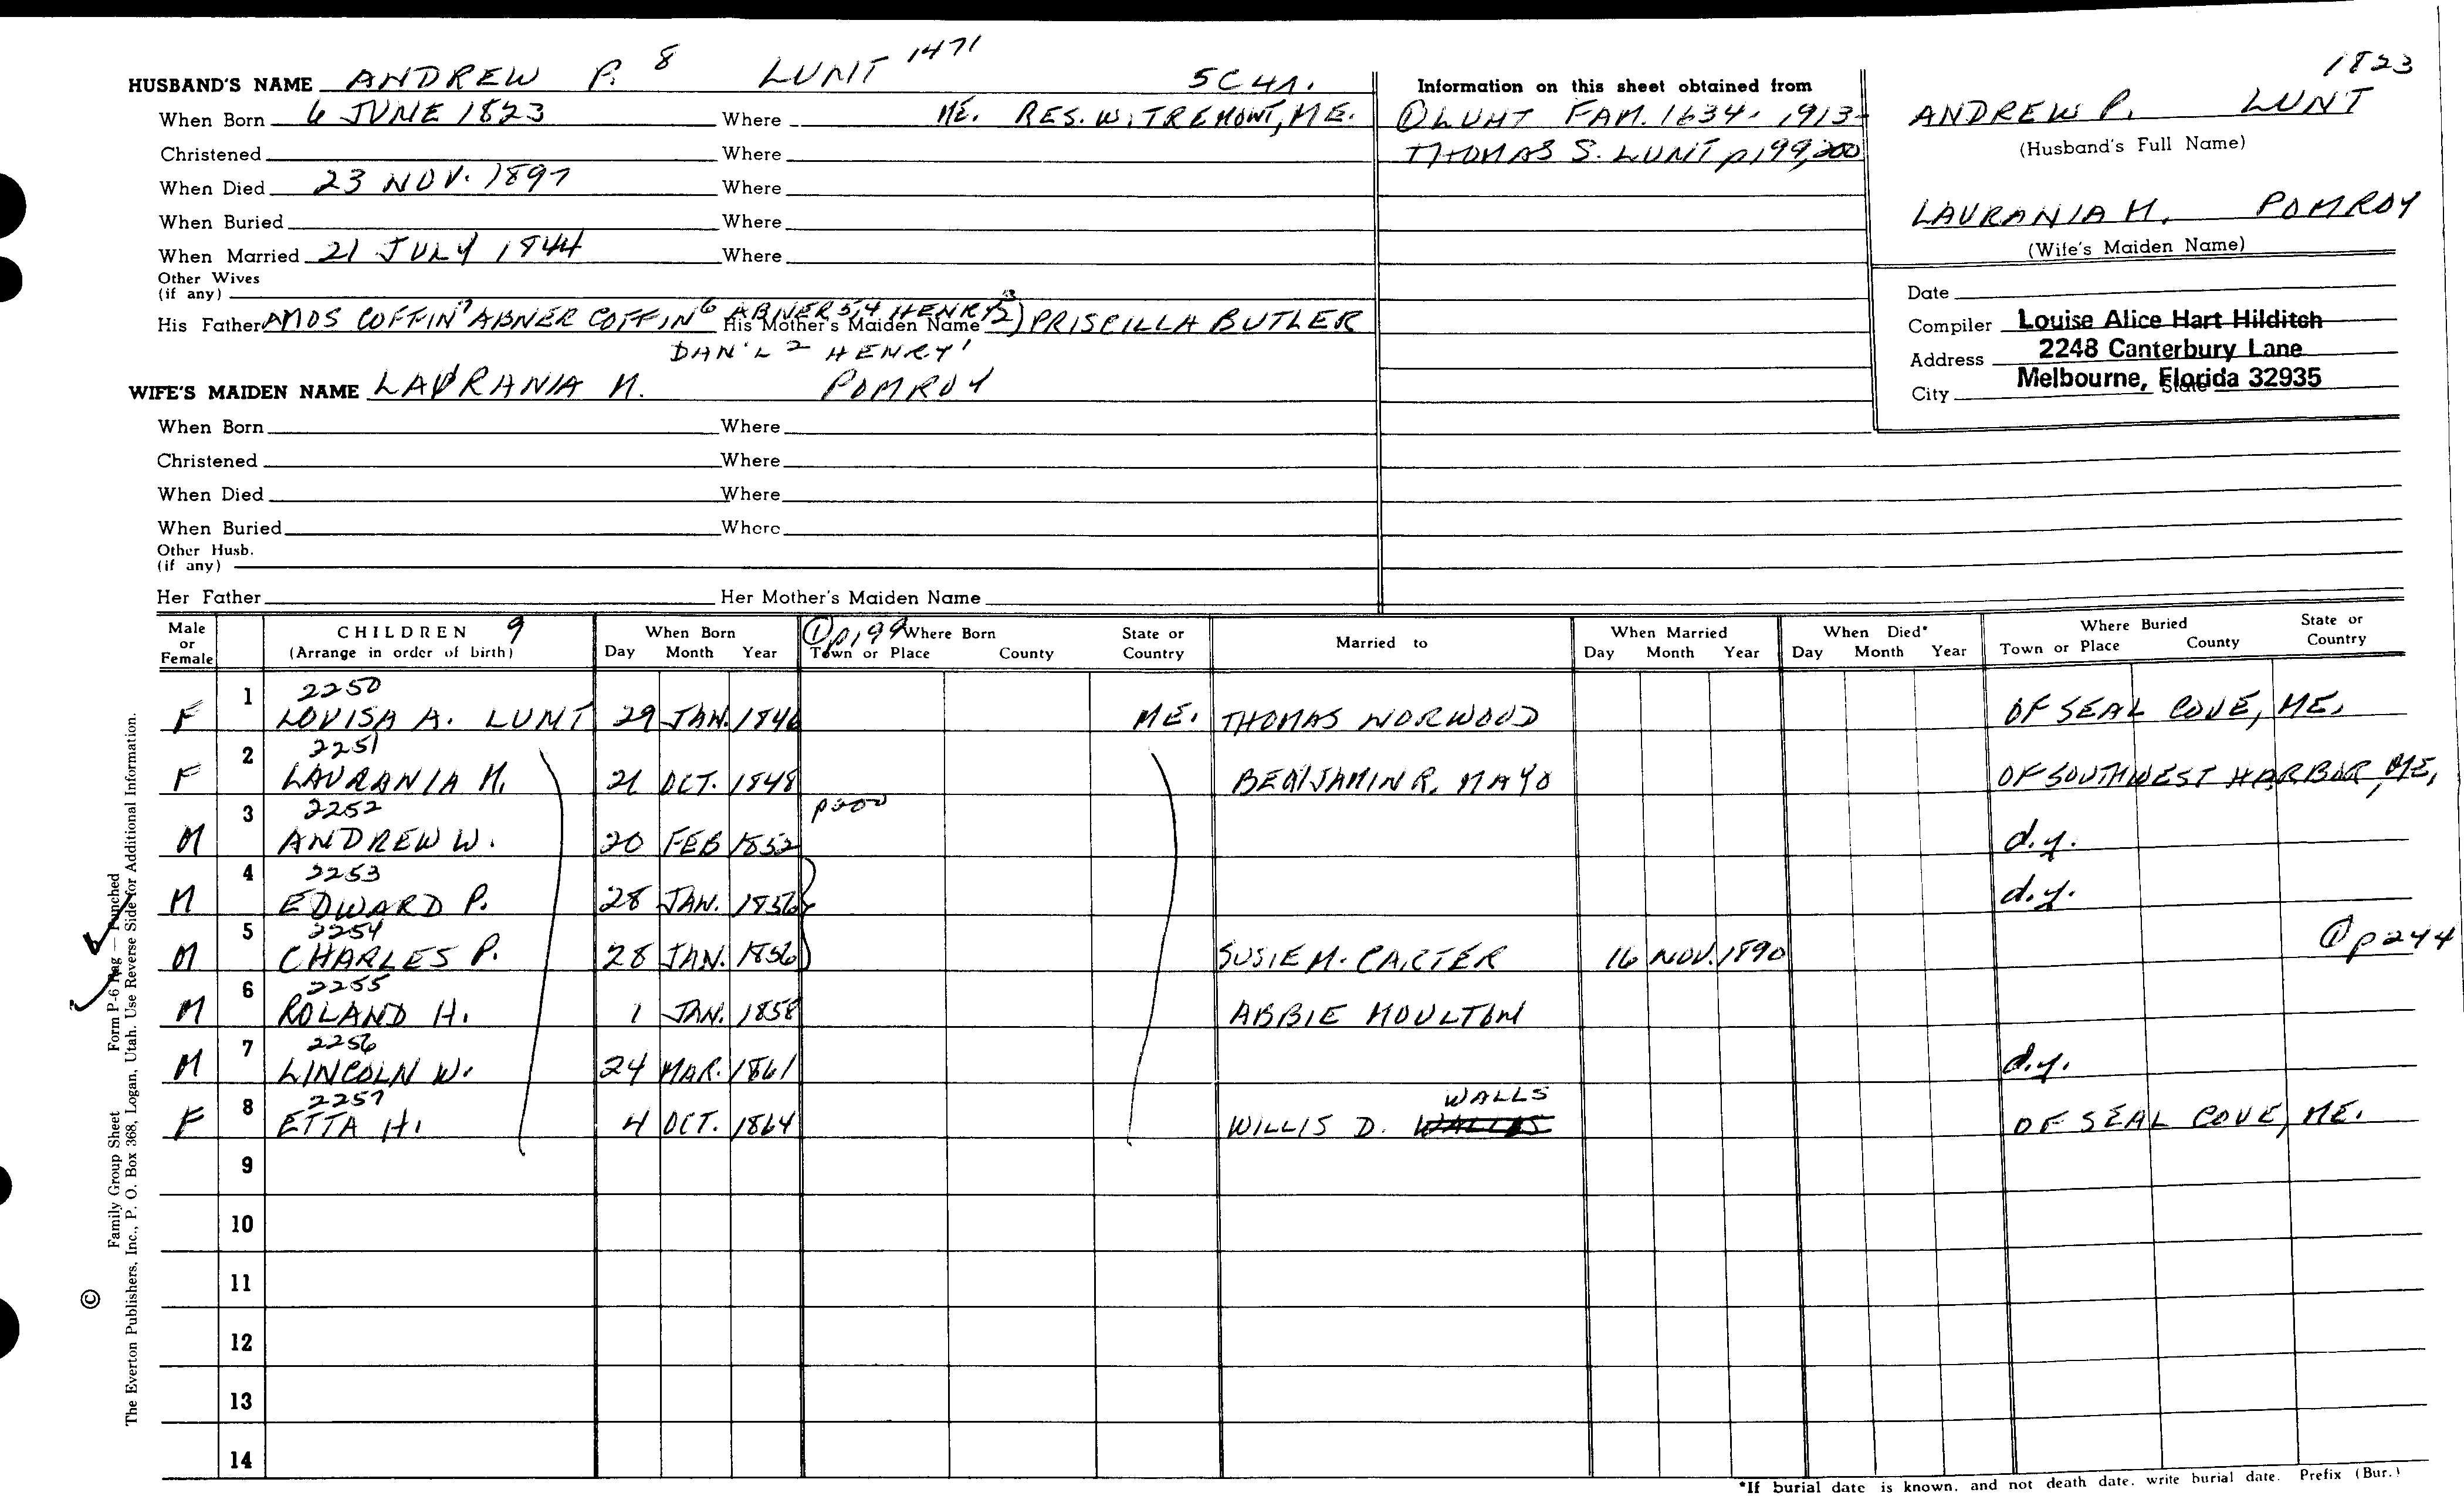 1823
HUSBAND'S NAME ANDREW P. 8 LUNT 1471 5 CH.
When Born 6 JUNE 1823 Where ME. RES. W. TREMONT, ME.
Christened Where
When Died 23 NOV. 1897 Where
When Buried Where
When Married 21 JULY 1844 Where
Other Wives
(if any)
His Father AMOS COFFIN 7 ABNER COFFIN 6 ABNER 5,4 HENRY 3 His Mother's Maiden Name 2) PRISCILLA BUTLER
DAN'L 2 HENRY 1
WIFE'S MAIDEN NAME LAURANIA M. POMROY
When Born Where
Christened Where
When Died Where
When Buried Where
Other Husb.
(if any)
Her Father Her Mother's Maiden Name
Information on this sheet obtained from
① LUNT FAM. 1634-1913-
THOMAS S. LUNT p199,200
ANDREW P. LUNT
(Husband's Full Name)
LAURANIA M. POMROY
(Wife's Maiden Name)
Date
Compiler Louise Alice Hart Hilditch
Address 2248 Canterbury Lane
City Melbourne, Florida 32935 State
Male or Female CHILDREN 9 (Arrange in order of birth) When Born Day Month Year ① p199 Where Born Town or Place County State or Country Married to When Married Day Month Year When Died* Day Month Year Where Buried Town or Place County State or Country
1 2250
F LOUISA A. LUNT 29 JAN. 1846 ME. THOMAS NORWOOD OF SEAL COVE, ME.
2 2251
F LAURANIA M. 21 OCT. 1848 BENJAMIN R. MAYO OF SOUTHWEST HARBOR, ME.
3 2252 p200
M ANDREW W. 20 FEB 1852 d.y.
4 2253
M EDWARD P. 28 JAN. 1856 d.y.
5 2254
M CHARLES P. 28 JAN. 1856 SUSIE M. CARTER 16 NOV. 1890 ① p244
6 2255
M ROLAND H. 1 JAN. 1858 ABBIE MOULTON
7 2256
M LINCOLN W. 24 MAR. 1861 d.y.
8 2257 WALLS
F ETTA H. 4 OCT. 1864 WILLIS D. OF SEAL COVE, ME.
9
10
11
12
13
14
*If burial date is known, and not death date, write burial date. Prefix (Bur.)
© Family Group Sheet Form P-6 Rag — Punched
The Everton Publishers, Inc., P. O. Box 368, Logan, Utah. Use Reverse Side for Additional Information.